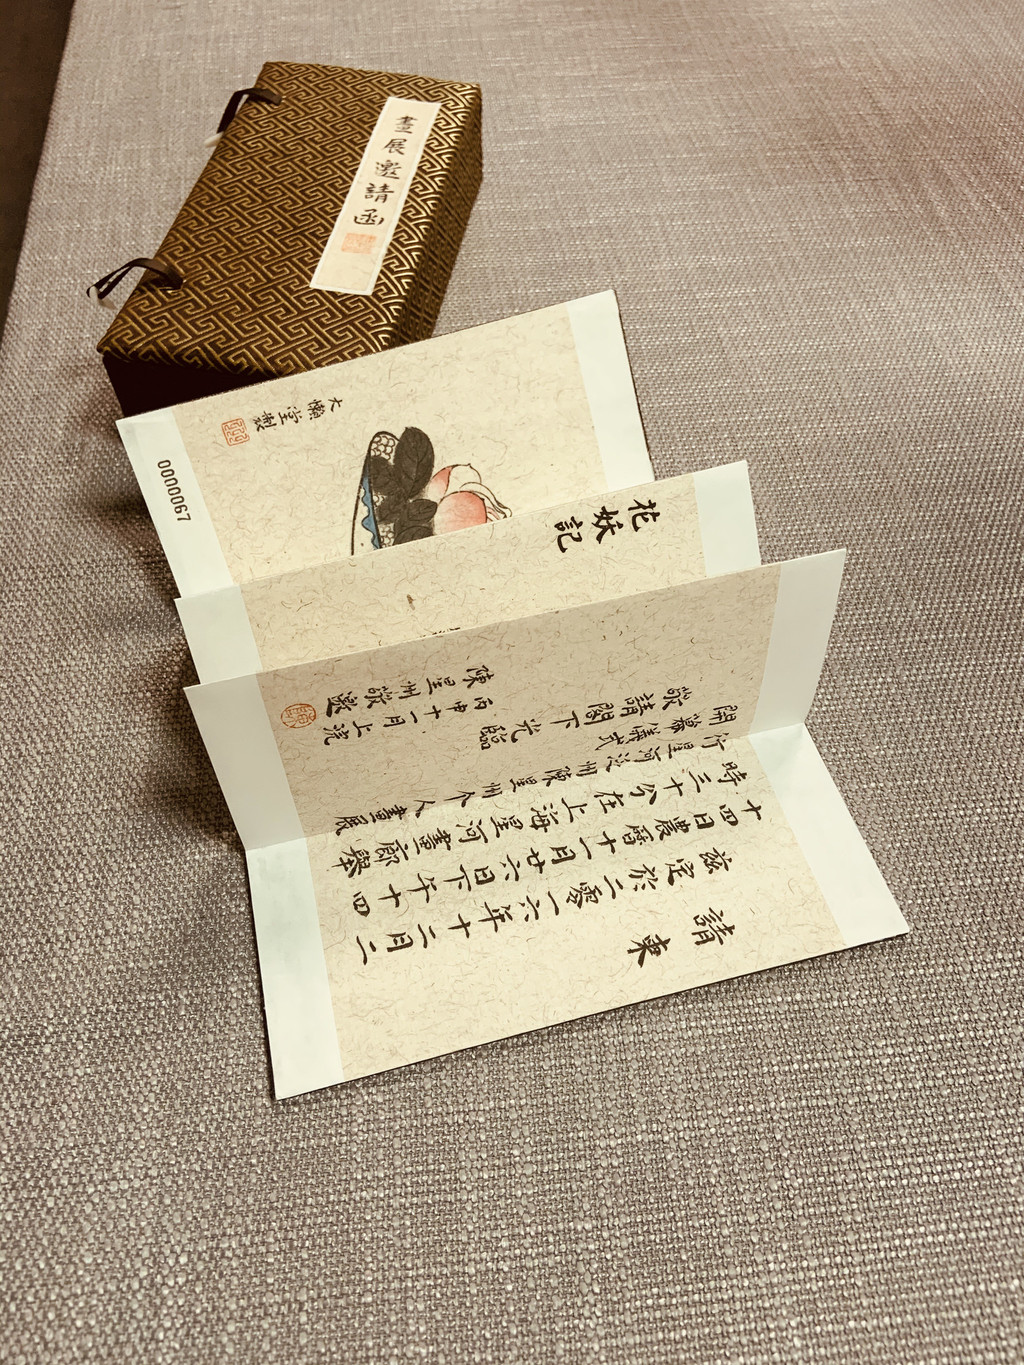 畫展邀請函
大懶堂製
0000067
花妖記
請柬
茲定於二零一六年十二月二
十四日農曆十一月廿六日下午十四
時三十分在上海星河畫廊舉
行星河 陳星州个人畫展
開幕儀式
敬請閣下光臨
陳星州敬邀
丙申十一月上浣